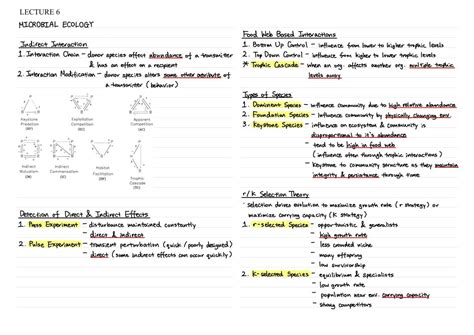 LECTURE 6
MICROBIAL ECOLOGY
Indirect Interaction
1. Interaction Chain - donor species affect abundance of a transmitter
& has an effect on a recipient
2. Interaction Modification - donor species alters some other attribute of
a transmitter (behavior)
Keystone
Predation
Exploitation
Competition
Apparent
Competition
Indirect
Mutualism
Indirect
Commensalism
Habitat
Trophic
Cascade
Detection of Direct & Indirect Effects
1. Press Experiment - disturbance maintained constantly
- direct & indirect
2. Pulse Experiment - transient perturbation (quick / poorly designed)
- direct (some indirect effects can occur quickly)
Food Web Based Interactions
1. Bottom Up Control - influence from lower to higher trophic levels
2. Top Down Control - influence from higher to lower trophic levels
* Trophic Cascade - when an org. affects another org. multiple trophic
levels away
Types of Species
1. Dominant Species - influence community due to high relative abundance
2. Foundation Species - influence community by physically changing env.
3. Keystone Species - influence on ecosystem & community is
disproportional to it's abundance
- tend to be high in food web
(influence often through trophic interactions)
- keystone to community structure as they maintain
integrity & persistence through time
r/K Selection Theory
selection drives evolution to maximize growth rate (r strategy) or
maximize carrying capacity (K strategy)
1. r-selected Species - opportunistic & generalists
- high growth rate
- less crowded niche
- many offspring
- low survivorship
2. K-selected Species - equilibrium & specialists
- low growth rate
- population near env. carrying capacity
- strong competitors